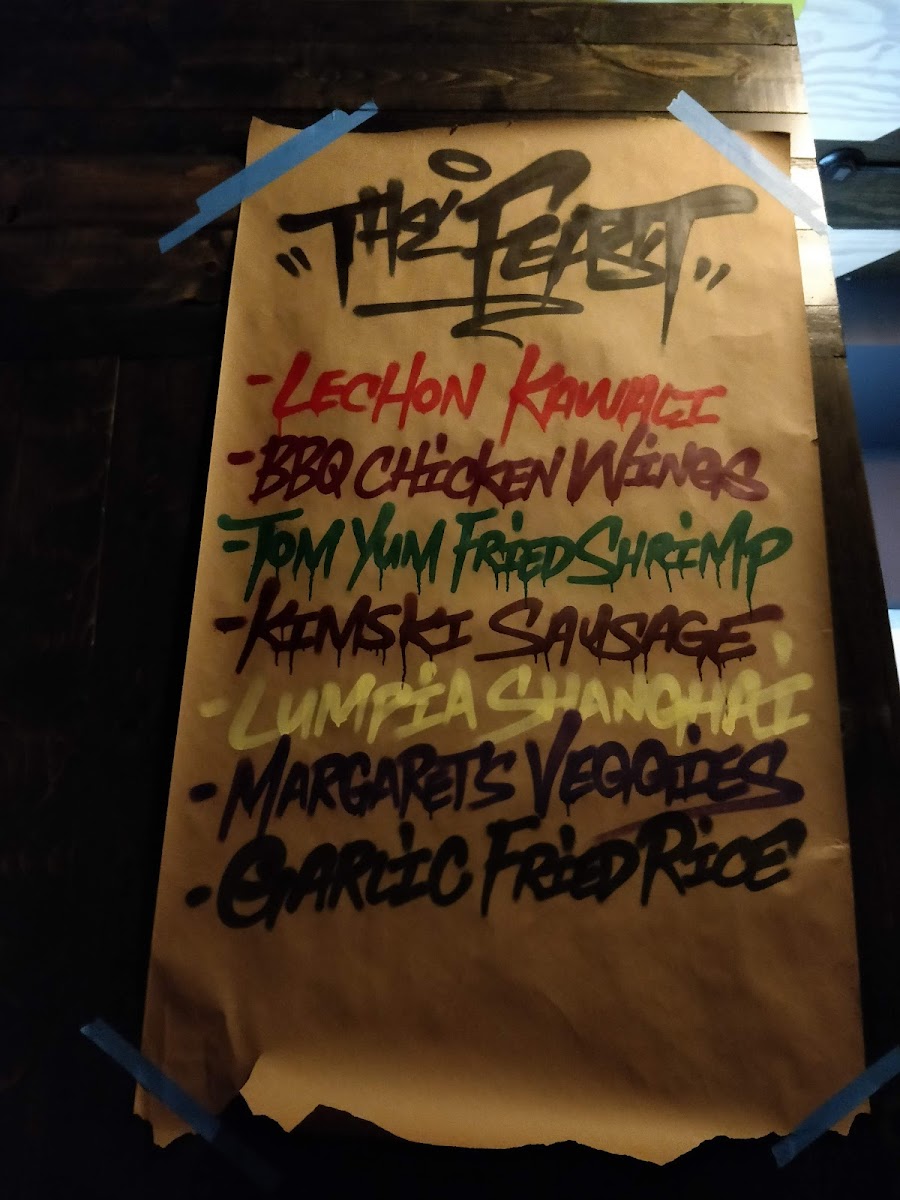 "THE FEAST"
- LECHON KAWALI
- BBQ CHICKEN WINGS
- TOM YUM FRIED SHRIMP
- KIMSKI SAUSAGE
- LUMPIA SHANGHAI
- MARGARET'S VEGGIES
- GARLIC FRIED RICE